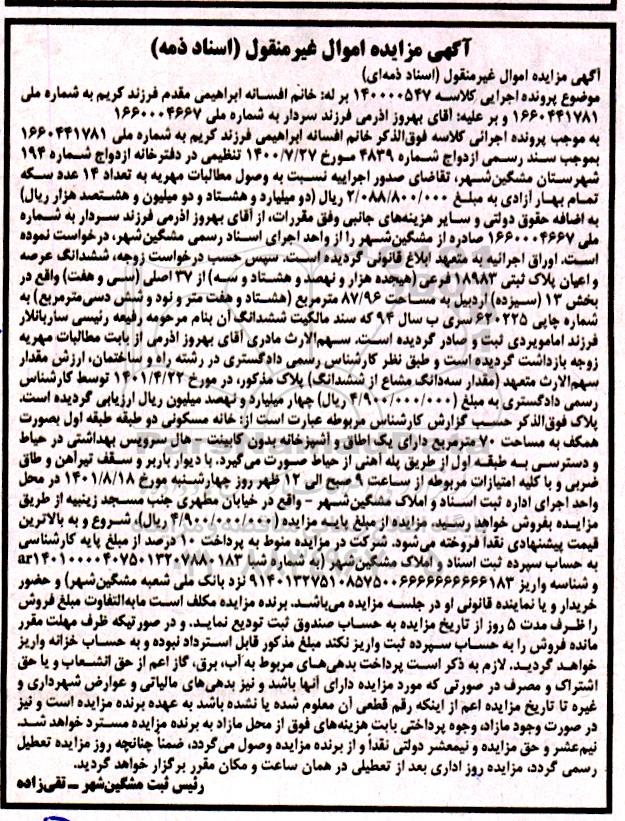 آگهی مزایده اموال غیرمنقول (اسناد ذمه)
آگهی مزایده اموال غیرمنقول (اسناد ذمه‌ای)
موضوع پرونده اجرایی کلاسه ۱۴۰۰۰۰۵۴۷ بر له: خانم افسانه ابراهیمی مقدم فرزند کریم به شماره ملی
۱۶۶۰۴۴۱۷۸۱ و بر علیه: آقای بهروز اذرمی فرزند سردار به شماره ملی ۱۶۶۰۰۰۴۶۶۷
به موجب پرونده اجرائی کلاسه فوق‌الذکر خانم افسانه ابراهیمی فرزند کریم به شماره ملی ۱۶۶۰۴۴۱۷۸۱
بموجب سند رسمی ازدواج شماره ۴۸۳۹ مورخ ۱۴۰۰/۷/۲۷ تنظیمی در دفترخانه ازدواج شماره ۱۹۴
شهرستان مشگین‌شهر، تقاضای صدور اجراییه نسبت به وصول مطالبات مهریه به تعداد ۱۴ عدد سکه
تمام بهار آزادی به مبلغ ۲/۰۸۸/۸۰۰/۰۰۰ ریال (دو میلیارد و هشتاد و دو میلیون و هشتصد هزار ریال)
به اضافه حقوق دولتی و سایر هزینه‌های جانبی وفق مقررات، از آقای بهروز اذرمی فرزند سردار به شماره
ملی ۱۶۶۰۰۰۴۶۶۷ صادره از مشگین‌شهر را از واحد اجرای اسناد رسمی مشگین‌شهر، درخواست نموده
است. اوراق اجرائیه به متعهد ابلاغ قانونی گردیده است. سپس حسب درخواست زوجه، ششدانگ عرصه
و اعیان پلاک ثبتی ۱۸۹۸۳ فرعی (هیجده هزار و نهصد و هشتاد و سه) از ۳۷ اصلی (سی و هفت) واقع در
بخش ۱۳ (سیزده) اردبیل به مساحت ۸۷/۹۶ مترمربع (هشتاد و هفت متر و نود و شش دسی‌مترمربع) به
شماره چاپی ۶۲۰۲۲۵ سری ب سال ۹۴ که سند مالکیت ششدانگ آن بنام مرحومه رفیعه رئیسی ساربانلار
فرزند امامویردی ثبت و صادر گردیده است. سهم‌الارث مادری آقای بهروز اذرمی از بابت مطالبات مهریه
زوجه بازداشت گردیده است و طبق نظر کارشناس رسمی دادگستری در رشته راه و ساختمان، ارزش مقدار
سهم‌الارث متعهد (مقدار سه‌دانگ مشاع از ششدانگ) پلاک مذکور، در مورخ ۱۴۰۱/۴/۲۲ توسط کارشناس
رسمی دادگستری به مبلغ (۴/۹۰۰/۰۰۰/۰۰۰ ریال) چهار میلیارد و نهصد میلیون ریال ارزیابی گردیده است.
پلاک فوق‌الذکر حسب گزارش کارشناس مربوطه عبارت است از: خانه مسکونی دو طبقه طبقه اول بصورت
همکف به مساحت ۷۰ مترمربع دارای یک اطاق و آشپزخانه بدون کابینت - هال سرویس بهداشتی در حیاط
و دسترسی به طبقه اول از طریق پله آهنی از حیاط صورت می‌گیرد. با دیوار باربر و سقف تیرآهن و طاق
ضربی و با کلیه امتیازات مربوطه از ساعت ۹ صبح الی ۱۲ ظهر روز چهارشنبه مورخ ۱۴۰۱/۸/۱۸ در محل
واحد اجرای اداره ثبت اسناد و املاک مشگین‌شهر - واقع در خیابان مطهری جنب مسجد زینبیه از طریق
مزایده بفروش خواهد رسید. مزایده از مبلغ پایه مزایده (۴/۹۰۰/۰۰۰/۰۰۰ ریال)، شروع و به بالاترین
قیمت پیشنهادی نقداً فروخته می‌شود. شرکت در مزایده منوط به پرداخت ۱۰ درصد از مبلغ پایه کارشناسی
به حساب سپرده ثبت اسناد و املاک مشگین‌شهر (به شماره شبا
و شناسه واریز نزد بانک ملی شعبه مشگین‌شهر) و حضور
خریدار و یا نماینده قانونی او در جلسه مزایده می‌باشد. برنده مزایده مکلف است مابه‌التفاوت مبلغ فروش
را ظرف مدت ۵ روز از تاریخ مزایده به حساب صندوق ثبت تودیع نماید. و در صورتیکه ظرف مهلت مقرر
مانده فروش را به حساب سپرده ثبت واریز نکند مبلغ مذکور قابل استرداد نبوده و به حساب خزانه واریز
خواهد گردید. لازم به ذکر است پرداخت بدهی‌های مربوط به آب، برق، گاز اعم از حق انشعاب و یا حق
اشتراک و مصرف در صورتی که مورد مزایده دارای آنها باشد و نیز بدهی‌های مالیاتی و عوارض شهرداری و
غیره تا تاریخ مزایده اعم از اینکه رقم قطعی آن معلوم شده یا نشده باشد به عهده برنده مزایده است و نیز
در صورت وجود مازاد، وجوه پرداختی بابت هزینه‌های فوق از محل مازاد به برنده مزایده مسترد خواهد شد.
نیم‌عشر و حق مزایده و نیمعشر دولتی نقداً و از برنده مزایده وصول می‌گردد، ضمناً چنانچه روز مزایده تعطیل
رسمی گردد، مزایده روز اداری بعد از تعطیلی در همان ساعت و مکان مقرر برگزار خواهد گردید.
رئیس ثبت مشگین‌شهر ــ تقی‌زاده